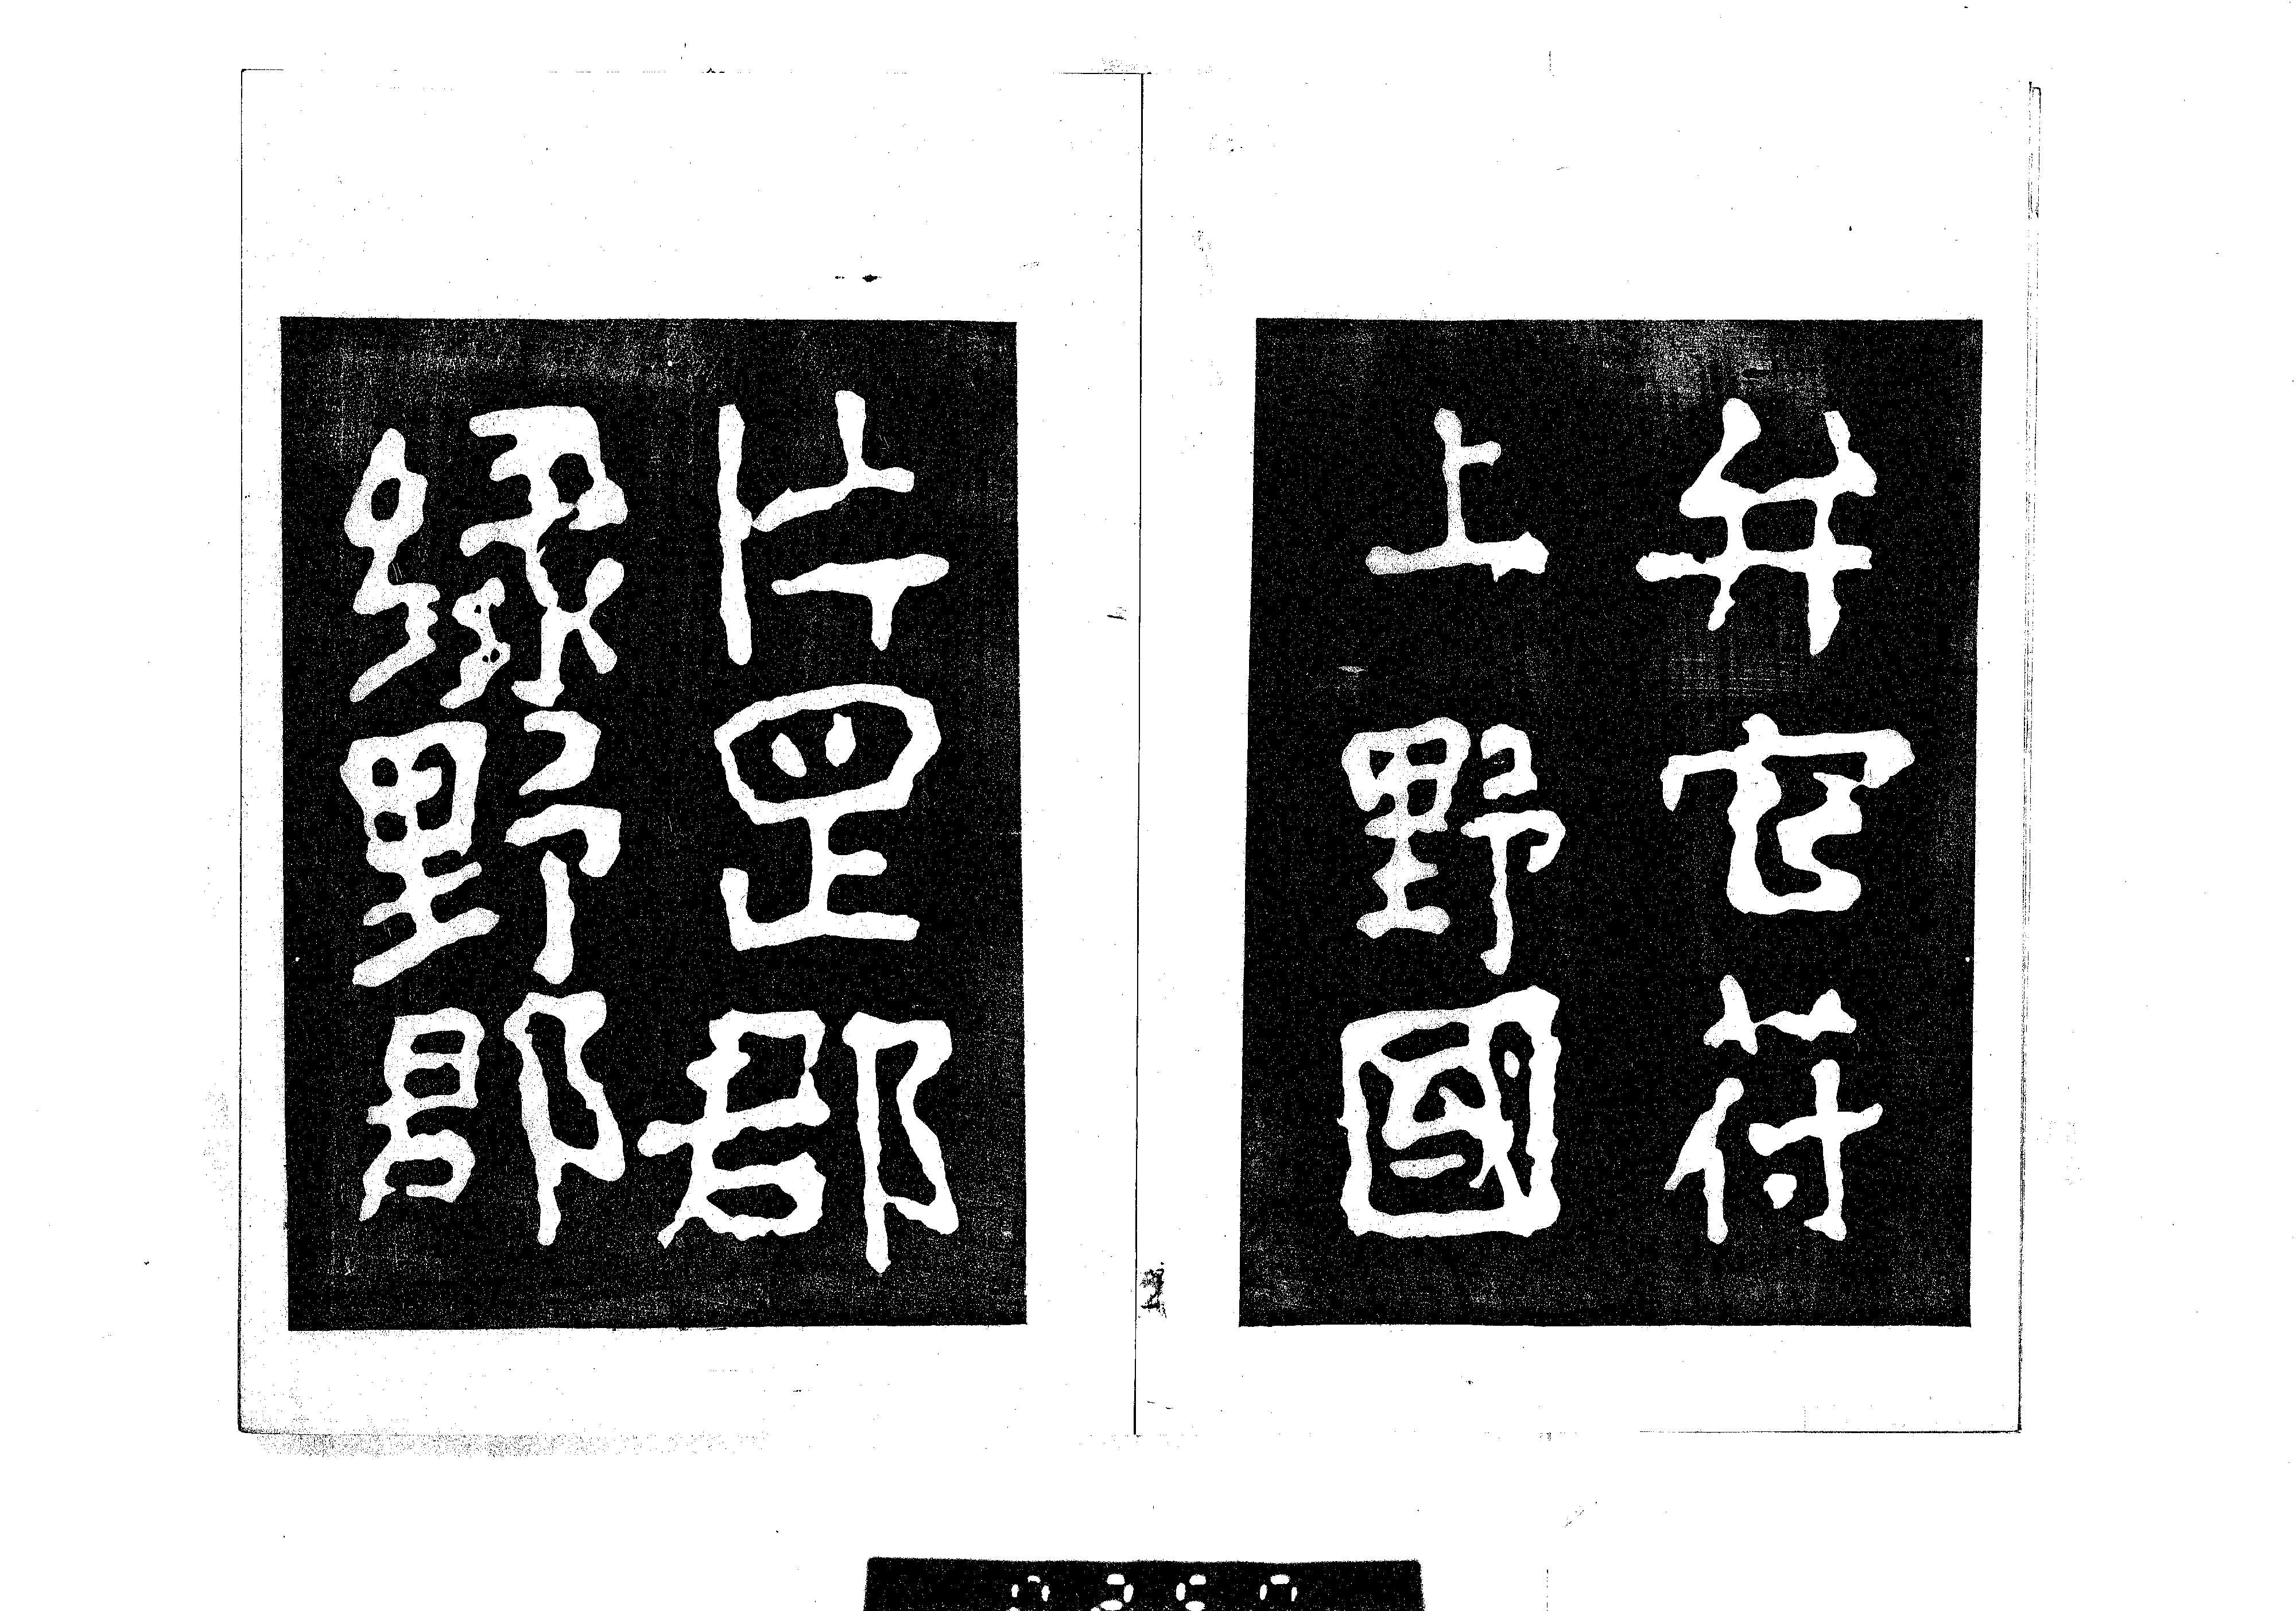 弁官符
上野國
片罡郡
緑野郡